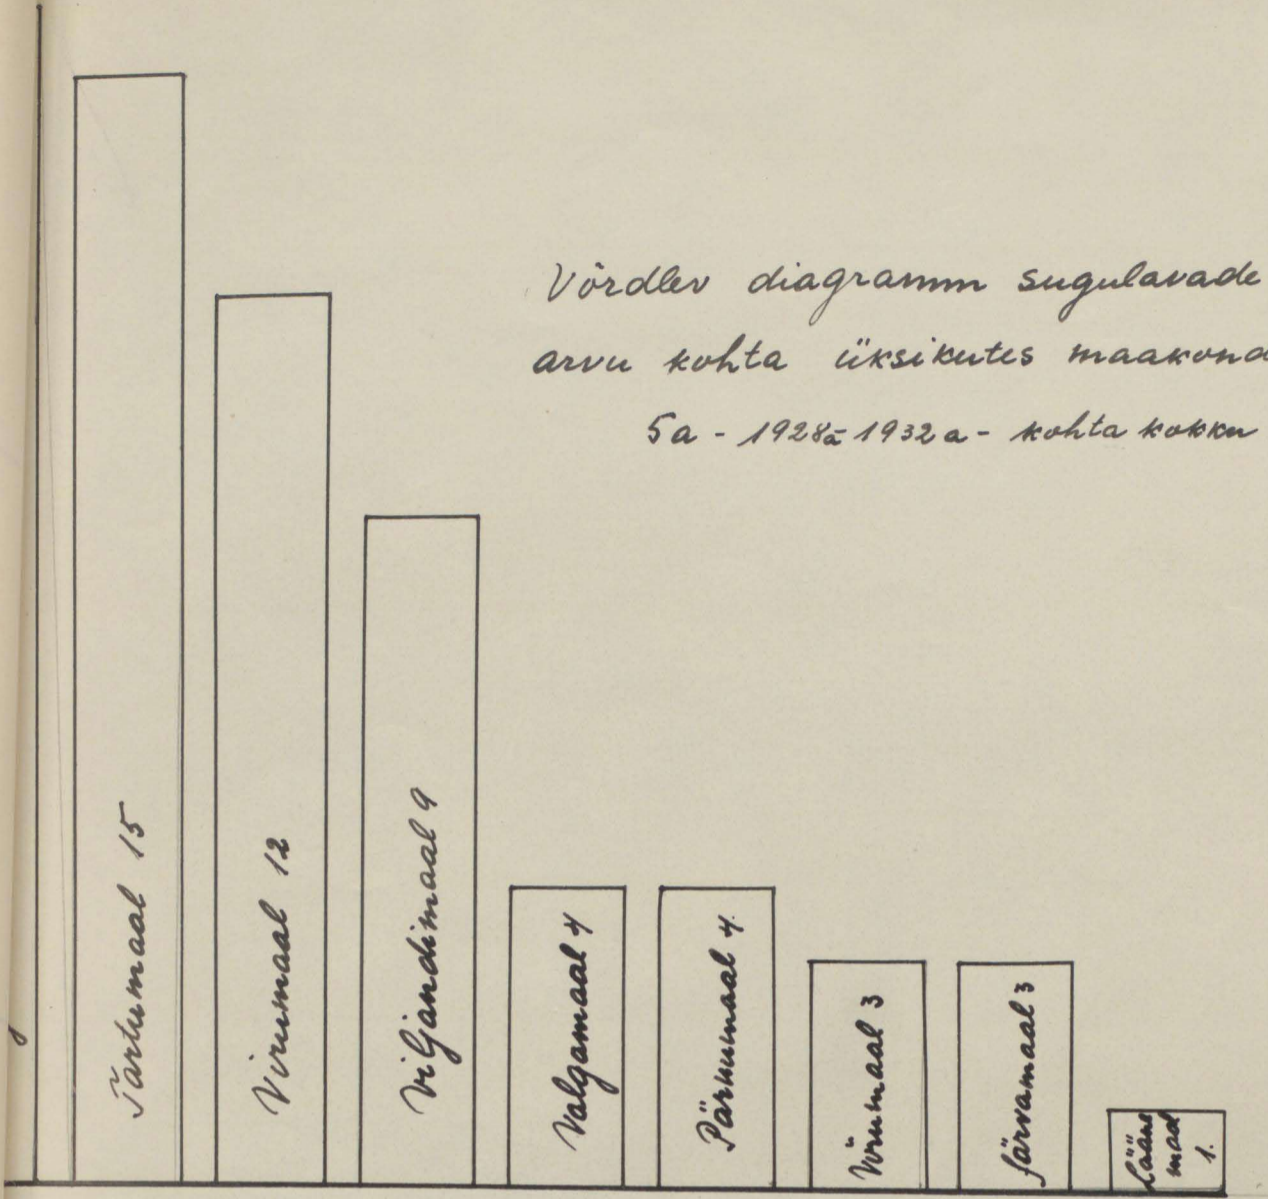 Võrdlev diagramm sugulavade
arvu kohta üksikutes maakond
5a - 1928a-1932a - kohta kokku
Tartumaal 15
Virumaal 12
Viljandimaal 9
Valgamaal 4
Pärnumaal 4.
Võrumaal 3
Järvamaal 3
Lääne
maal
1.